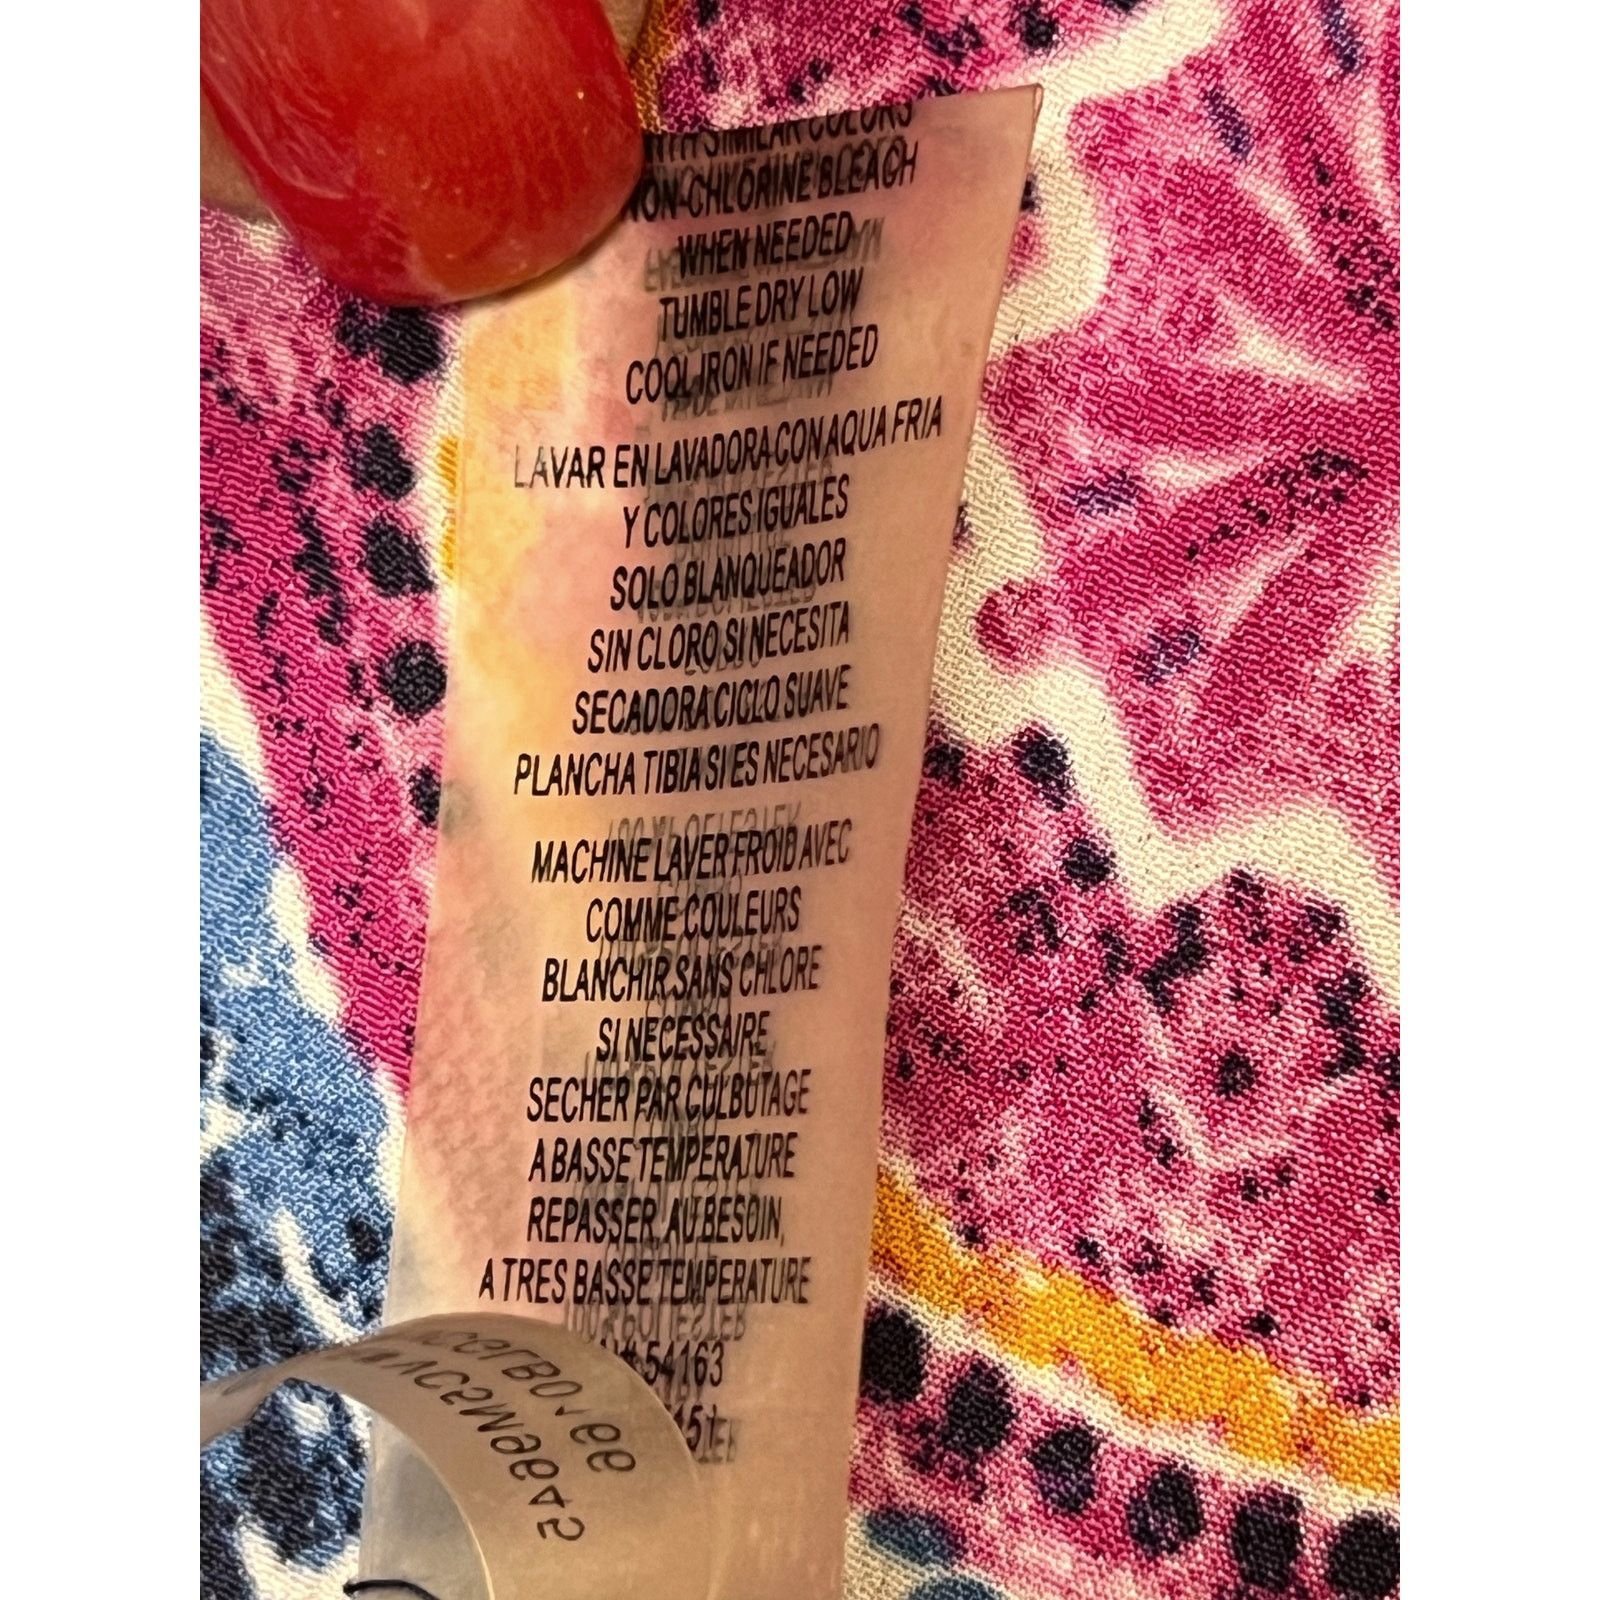 SIMILAR COLORS
NON-CHLORINE BLEACH
WHEN NEEDED
TUMBLE DRY LOW
COOL IRON IF NEEDED
LAVAR EN LAVADORA CON AQUA FRIA
Y COLORES IGUALES
SOLO BLANQUEADOR
SIN CLORO SI NECESITA
SECADORA CICLO SUAVE
PLANCHA TIBIA SI ES NECESARIO
MACHINE LAVER FROID AVEC
COMME COULEURS
BLANCHIR SANS CHLORE
SI NECESSAIRE
SECHER PAR CULBUTAGE
A BASSE TEMPERATURE
REPASSER AU BESOIN,
A TRES BASSE TEMPERATURE
54163